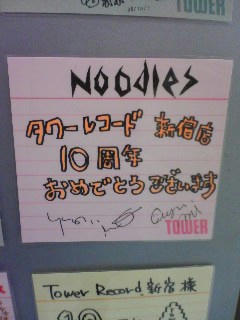 TOWER
NOODLES
タワーレコード 新宿店
10周年
おめでとうございます
TOWER
Tower Record 新宿様
10